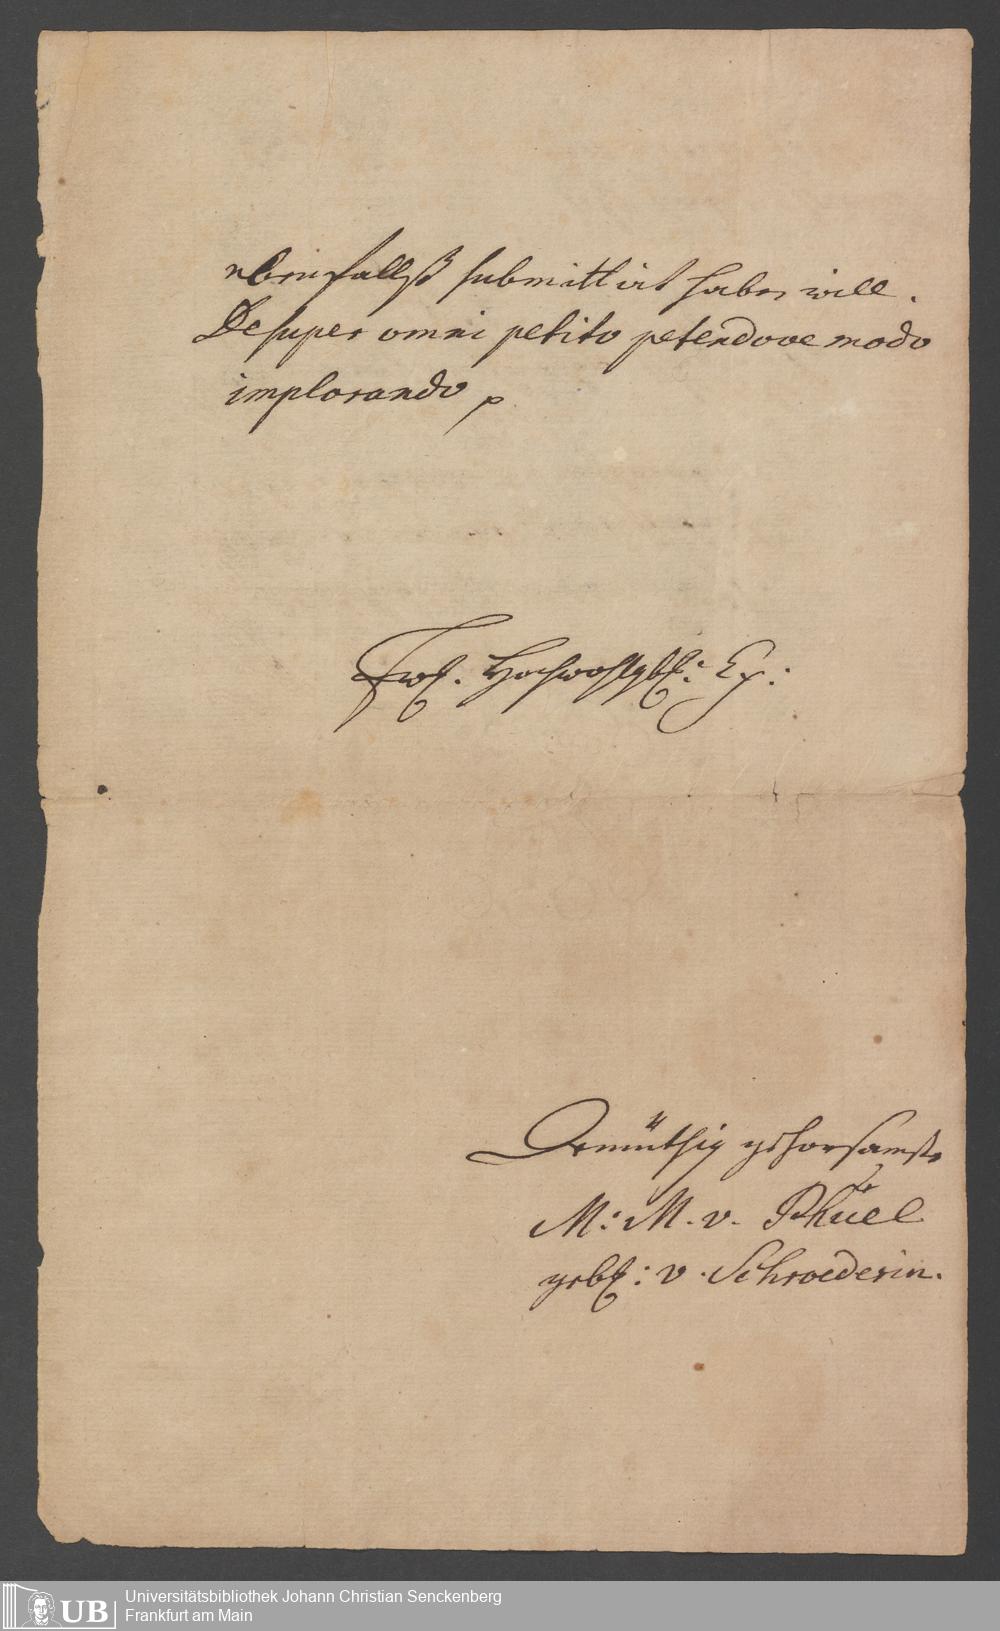 ebenfallß submittirt haben will.
Desuper omni petito petendove modo
implorando p
Ew. Hochwohlgb: Ex:
Demüthig gehorsamste
M: M. v. Pfuel
geb: v. Schroederin.
UB
Universitätsbibliothek Johann Christian Senckenberg
Frankfurt am Main